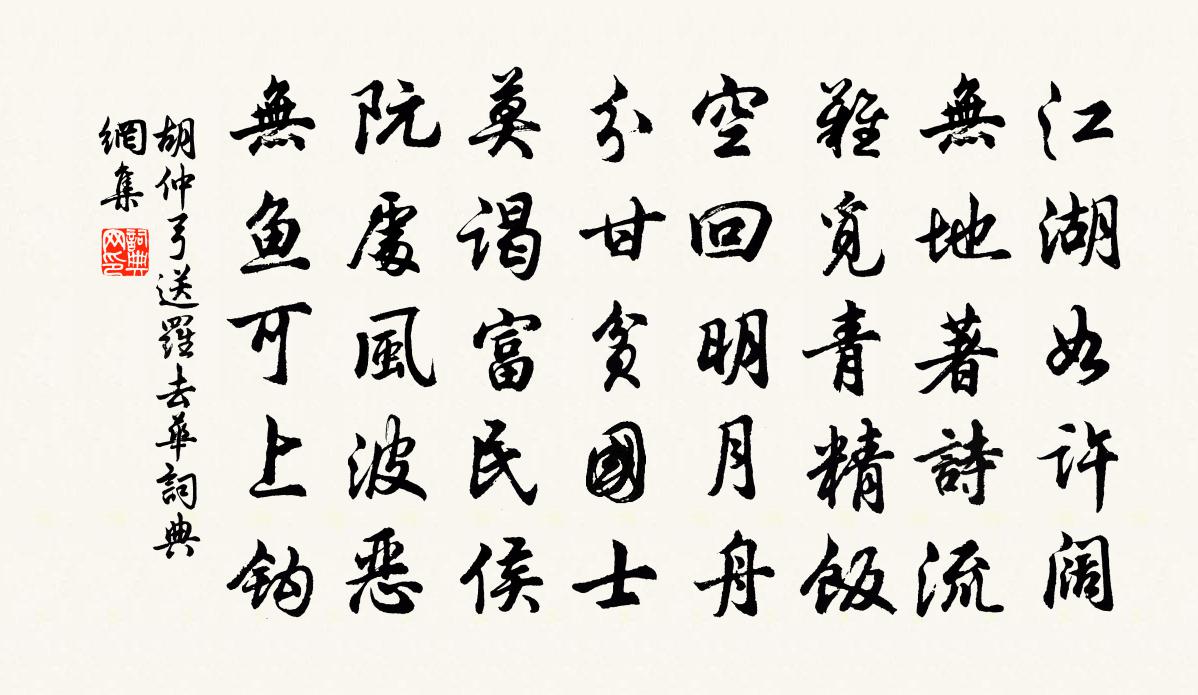 江湖如许阔
無地著詩流
難覓青精飯
空回明月舟
分甘貧國士
莫謁富民侯
阮處風波惡
無魚可上鈎
胡仲弓送羅去華詞典
網集
詞典
网印